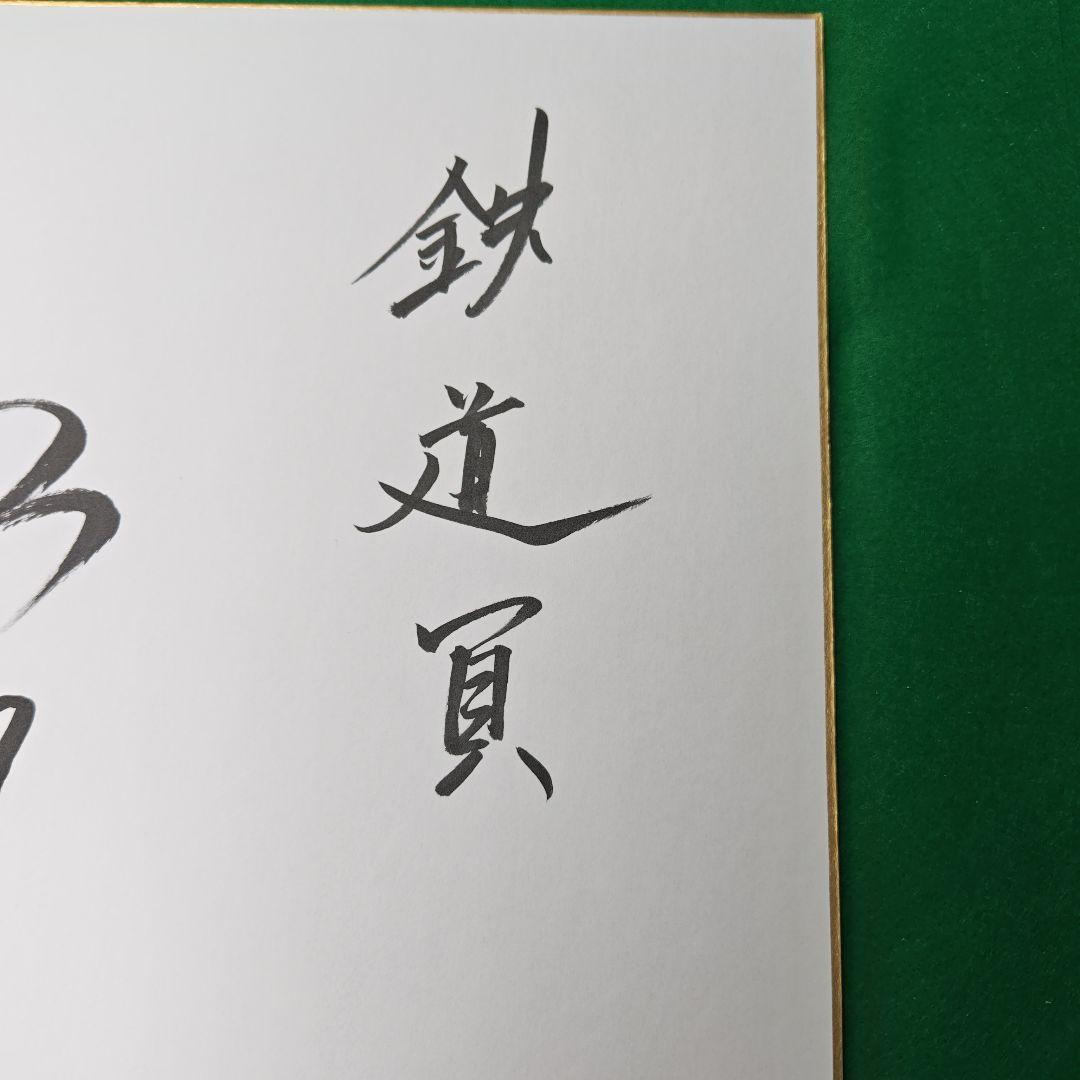 鉄道員